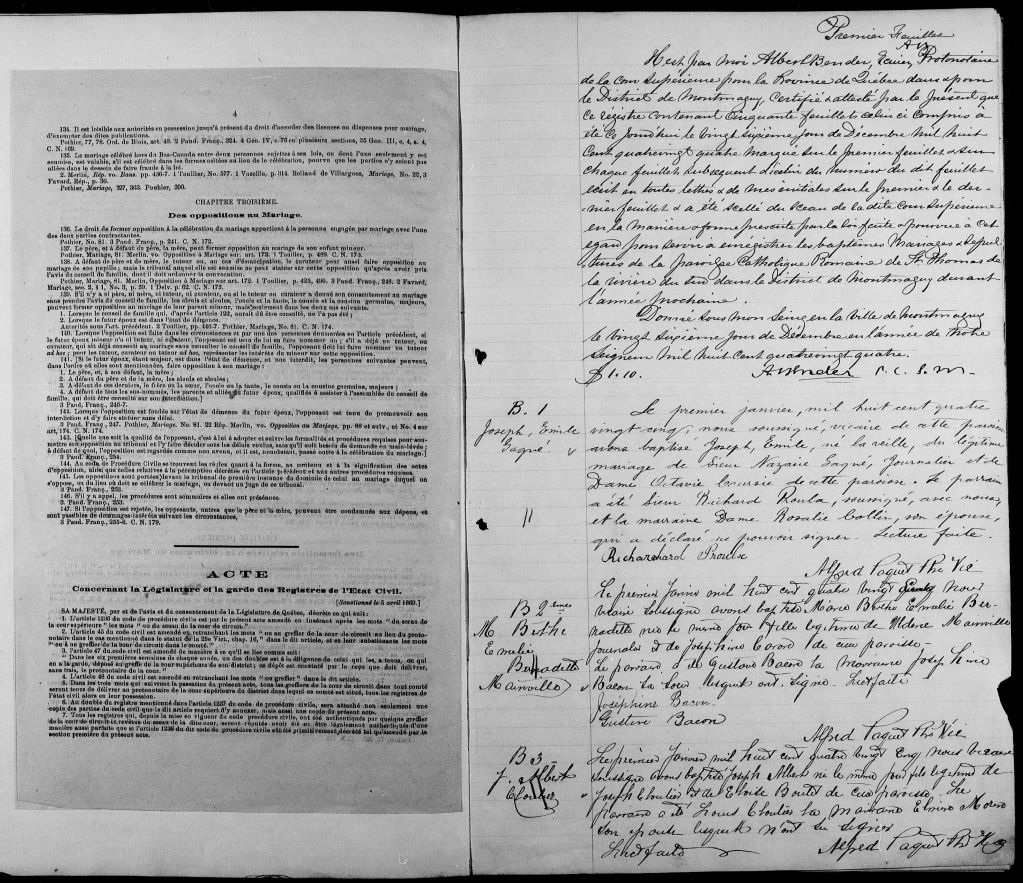 4
134. Il est loisible aux autorités en possession jusqu'à présent du droit d'accorder des licences ou dispenses pour mariage,
d'exempter des dites publications.
Pothier, 77, 78. Ord. de Blois, art. 40. 2 Pand. Franç., 324. 4 Géo. IV, c. 76 en plusieurs sections, 35 Geo. III, c. 4, s. 4,
C. N. 169.
135. Le mariage célébré hors du Bas-Canada entre deux personnes sujettes à ses lois, ou dont l'une seulement y est
soumise, est valable, s'il est célébré dans les formes usitées au lieu de la célébration, pourvu que les parties n'y soient pas
allées dans le dessein de faire fraude à la loi.
2 Merlin, Rép. vo. Bans. pp. 436-7. 1 Toullier, No. 577. 1 Vazeille, p. 314. Rolland de Villargues, Mariage, No. 22, 3
Favard, Rép., p. 30.
Pothier, Mariage, 327, 363. Pothier, 390.
CHAPITRE TROISIÈME.
Des oppositions au Mariage.
136. Le droit de former opposition à la célébration du mariage appartient à la personne engagée par mariage avec l'une
des deux parties contractantes.
Pothier, No. 81. 3 Pand. Franç., p. 241. C. N. 172.
137. Le père, et à défaut du père, la mère, peut former opposition au mariage de son enfant mineur.
Pothier, Mariage, 81. Merlin, vo. Opposition à Mariage sur art. 173. 1 Toullier, p. 489. C. N. 173.
138. A défaut de père et de mère, le tuteur ou, au cas d'émancipation, le curateur peut aussi faire opposition au
mariage de son pupille; mais le tribunal auquel elle est soumise ne peut statuer sur cette opposition qu'après avoir pris
l'avis du conseil de famille, dont il doit ordonner la convocation.
Pothier, Mariage, 81. Merlin, Opposition à Mariage sur art. 172. 1 Toullier, p. 425, 490. 3 Pand. Franç., 248. 2 Favard,
Mariage, sec. 2, § 1, No. 3, p. 59. 1 Delv. p. 62. C. N. 175.
139. S'il n'y a ni père, ni mère, ni tuteur, ni curateur, ou si le tuteur ou curateur a donné son consentement au mariage
sans prendre l'avis du conseil de famille, les aïeuls et aïeules, l'oncle et la tante, le cousin et la cousine germains, majeurs,
peuvent former opposition au mariage de leur parent mineur, mais seulement dans les deux cas suivants.
1. Lorsque le conseil de famille qui, d'après l'article 122, aurait dû être consulté, ne l'a pas été;
2. Lorsque le futur époux est dans l'état de démence.
Autorités sous l'art. précédent. 2 Toullier, pp. 446-7. Pothier, Mariage, No. 81. C. N. 174.
140. Lorsque l'opposition est faite dans les circonstances et par une des personnes dénommées en l'article précédent, si
le futur époux mineur n'a ni tuteur, ni curateur, l'opposant est tenu de lui en faire nommer un; s'il a déjà un tuteur, ou
curateur, qui ait déjà consenti au mariage sans consulter le conseil de famille, l'opposant doit lui faire nommer un tuteur
ad hoc; pour les tuteur, curateur ou tuteur ad hoc, représenter les intérêts du mineur sur cette opposition.
141. [Si le futur époux, étant majeur, est dans l'état de démence, et non interdit, les personnes suivantes peuvent,
dans l'ordre où elles sont mentionnées, faire opposition à son mariage:
1. Le père, et, à son défaut, la mère;
2. A défaut du père et de la mère, les aïeuls et aïeules;
3. A défaut de ces derniers, le frère ou la sœur, l'oncle ou la tante, le cousin ou la cousine germains, majeurs;
4. A défaut de tous les sus-nommés, les parents et alliés du futur époux, qualifiés à assister à l'assemblée du conseil de
famille, qui doit être consulté sur son interdiction.]
3 Pand. Franç., 246-7.
142. Lorsque l'opposition est fondée sur l'état de démence du futur époux, l'opposant est tenu de promouvoir son
interdiction et d'y faire statuer sans délai.
3 Pand. Franç., 247. Pothier, Mariage No. 81. 22 Rép. Merlin, vo. Opposition au Mariage, pp. 88 et suiv., et No. 4 sur
art. 174. C. N. 174.
143. [Quelle que soit la qualité de l'opposant, c'est à lui à adopter et suivre les formalités et procédures requises pour soumettre
son opposition au tribunal et l'y faire décider sous les délais voulus, sans qu'il soit besoin de demande en main-levée;
à défaut de quoi, l'opposition est regardée comme non avenue, et il est, nonobstant, passé outre à la célébration du mariage.]
3 Pand. Franç., 254.
144. Au code de Procédure Civile se trouvent les règles quant à la forme, au contenu et à la signification des actes
d'opposition, ainsi que celles relatives à la péremption décrétée en l'article précédent et aux autres procédures requises.
145. Les oppositions sont portées devant le tribunal de première instance du domicile de celui au mariage duquel on
s'oppose, ou du lieu où doit se célébrer le mariage, ou devant un juge de ce tribunal.
3 Pand. Franç., 253.
146. S'il y a appel, les procédures sont sommaires et elles ont préséance.
3 Pand. Franç., 253.
147. Si l'opposition est rejetée, les opposants, autres que le père et la mère, peuvent être condamnés aux dépens, et
sont passibles de dommages-intérêts suivant les circonstances.
3 Pand. Franç., 255-6. C. N. 179.
ACTE
Concernant la Législature et la garde des Registres de l'Etat Civil.
[Sanctionné le 5 avril 1869.]
SA MAJESTÉ, par et de l'avis et du consentement de la Législature de Québec, décrète ce qui suit:
1. L'article 1236 du code de procédure civile est par le présent acte amendé en insérant après les mots "du sceau de
la cour supérieure" les mots "ou du sceau de la cour de circuit."
2. L'article 45 du code civil est amendé en retranchant les mots "ou au greffier de la cour de circuit au lieu du protonotaire
dans le cas mentionné dans le statut de la 25e Vict., chap. 16," dans le dit article, et en leur substituant les mots
"ou à un greffier de la cour de circuit dans le comté."
3. L'article 47 du code civil est amendé de manière à ce qu'il se lise comme suit:
"Dans les six premières semaines de chaque année, un des doubles est à la diligence de celui qui les a tenus, ou qui
en a la garde, déposé au greffe de la cour supérieure de son district; ce dépôt est constaté par le reçu que doit délivrer,
sans frais, le protonotaire de la cour."
4. L'article 48 du code civil est amendé en retranchant les mots "ou greffier" dans le dit article.
5. Dans les trois mois qui suivront la passation du présent acte, tous les greffiers de la cour de circuit dans tout comté
seront tenus de délivrer au protonotaire de la cour supérieure du district dans lequel ce comté est situé, tous les registres de
l'état civil alors en leur possession.
6. Au double du registre mentionné dans l'article 1237 du code de procédure civile, sera attaché non seulement une
copie des parties du code civil que le dit article requiert d'y annexer, mais aussi une copie du présent acte.
7. Tous les registres qui, depuis la mise en vigueur du code de procédure civile, ont été authentiqués par quelque greffier
de la cour de circuit et revêtus du sceau de la dite cour, seront réputés avoir été et être légalement authentiqués d'une
manière aussi parfaite que si l'article 1236 du dit code de procédure civile eût été primitivement décrété tel qu'amendé par la
section première du présent acte.
Premier Feuillet
A B
Il est par moi Albert Bender, Ecuier, Protonotaire
de la cour supérieure pour la Province de Québec dans & pour
le District de Montmagny, Certifié & attesté par le présent que
ce registre contenant Cinquante feuillets celui ci compris a
été ce jourdhui le vingt sixième jour de Décembre mil huit
cent quatrevingt quatre marqué sur le premier feuillet & sur
chaque feuillet subsequent d'icelui du numéro du dit feuillet
écrit en toutes lettres & de mes initiales sur le premier & le der-
nier feuillet & a été scellé du sceau de la dite cour supérieure
en la manière & forme prescrite par la loi faite & pourvue à cet
égard pour servir à enregistrer les baptêmes Mariages & sepul-
tures de la paroisse Catholique Romaine de St. Thomas de
la rivière du sud dans le District de Montmagny durant
l'année prochaine.
Donné sous mon seing en la ville de Montmagny
le vingt sixième jour de Décembre en l'année de Notre
Seigneur Mil huit cent quatrevingt quatre.
$1.10. A Bender P.C.S.M.
B. 1
Joseph, Emile
Gagné.
Le premier janvier, mil huit cent quatre
vingt cinq, nous soussigné, vicaire de cette paroisse
avons baptisé Joseph, Emile, né la veille, du légitime
mariage de Sieur Nazaire Gagné, Journalier et de
Dame Octavie de cette paroisse. Le parrain
a été Sieur Richard Proulx, soussigné, avec nous,
et la marraine Dame Rosalie Collin, son épouse,
qui a déclaré ne pouvoir signer. Lecture faite.
Richarchard Proulx
Alfred Paquet Ptre Vic
B 2ème
M. Berthe
Emelie
Bernadette
Mainville
Le premier janvier mil huit cent quatre vingt cinq nous
vicaire soussigné avons baptisé Marie Berthe Emelie Ber-
nadette née le même jour fille légitime de Mainville
Journalier et de Joséphine Caron de cette paroisse
Le parrain a été Gustave Bacon la marraine Joséphine
Bacon sa soeur lesquels ont signé. Lect faite
Joséphine Bacon
Gustave Bacon
Alfred Paquet Ptre Vic
B 3
J. Albert
Cloutier
Le premier janvier mil huit cent quatre vingt cinq nous vicaire
soussigné avons baptisé Joseph Albert né le même jour fils légitime de
Joseph Cloutier et de Eloise Boulet de cette paroisse. Le
parrain a été Louis Cloutier la marraine Morin
son épouse lesquels n'ont su signer
Lect faite
Alfred Paquet Ptre Vic